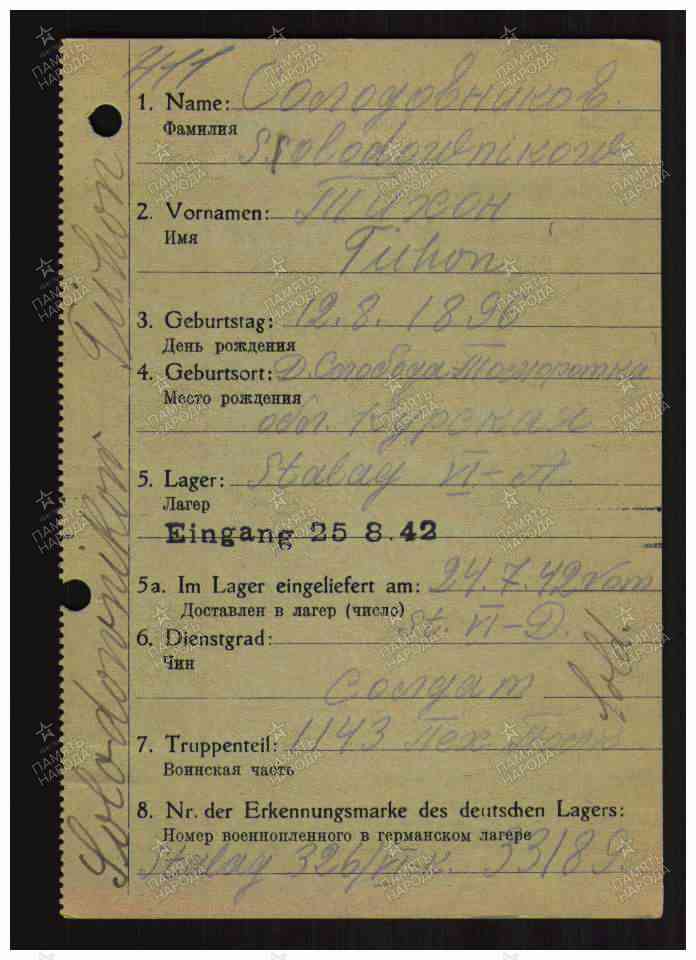 1. Name: Солодовников.
Фамилия
Ssolodownikow
2. Vornamen: Тихон
Имя
Tichon
3. Geburtstag: 12.8. 1896
День рождения
4. Geburtsort: Д. Слобода
Место рождения
обл. Курская
5. Lager: Stalag VI-A.
Лагер
Eingang 25 8.42
5a. Im Lager eingeliefert am: 24.7.42 vom
Доставлен в лагер (число)
St. VI-D.
6. Dienstgrad:
Чин
Солдат
Sold.
7. Truppenteil: 1143 Пех. Полк
Воинская часть
8. Nr. der Erkennungsmarke des deutschen Lagers:
Номер военнопленного в германском лагере
Stalag 326/VI K.
Solodownikow Tichon
ПАМЯТЬ НАРОДА